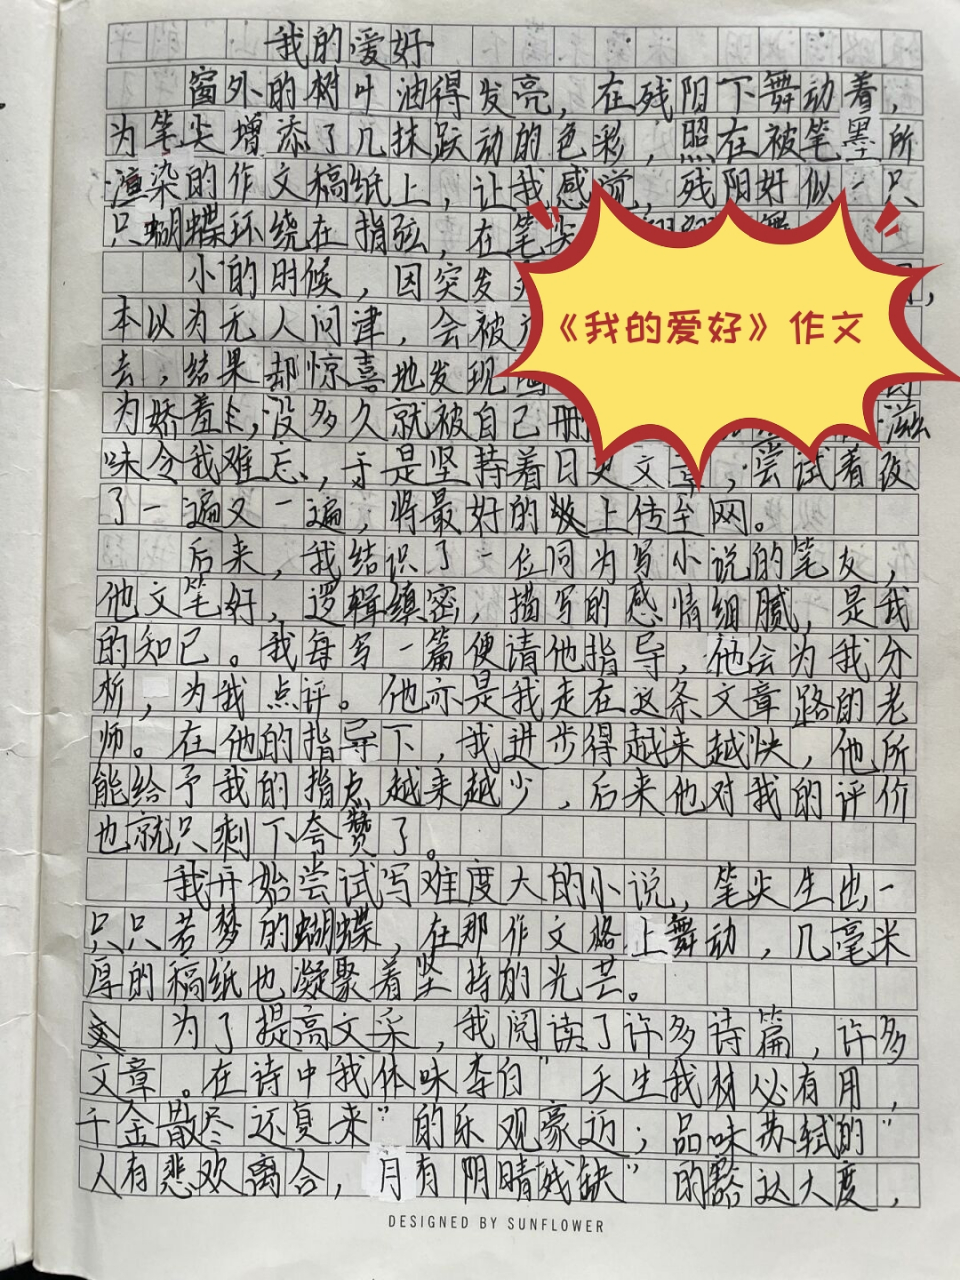 我的爱好
窗外的树叶油得发亮，在残阳下舞动着，
为笔尖增添了几抹跃动的色彩，照在被笔墨所
渲染的作文稿纸上，让我感觉，残阳好似一只
只蝴蝶环绕在指弦，在笔尖
小的时候，因突发
《我的爱好》作文
本以为无人问津，会被
去，结果却惊喜地发现
为娇羞，没多久就被自己册 滋
味令我难忘，于是坚持着日更文章，尝试着改
了一遍又一遍，将最好的上传至网。
后来，我结识了一位同为写小说的笔友，
他文笔好，逻辑缜密，描写的感情细腻，是我
的知己。我每写一篇便请他指导，他会为我分
析，为我点评。他亦是我走在这条文章路的老
师。在他的指导下，我进步得越来越快，他所
能给予我的指点越来越少，后来他对我的评价
也就只剩下夸赞了。
我开始尝试写难度大的小说，笔尖生出一
只只若梦的蝴蝶，在那作文格上舞动，几毫米
厚的稿纸也凝聚着坚持的光芒。
为了提高文采，我阅读了许多诗篇，许多
文章。在诗中我体味李白“天生我材必有用，
千金散尽还复来”的乐观豪迈；品味苏轼的“
人有悲欢离合，月有阴晴残缺”的豁达大度，
DESIGNED BY SUNFLOWER